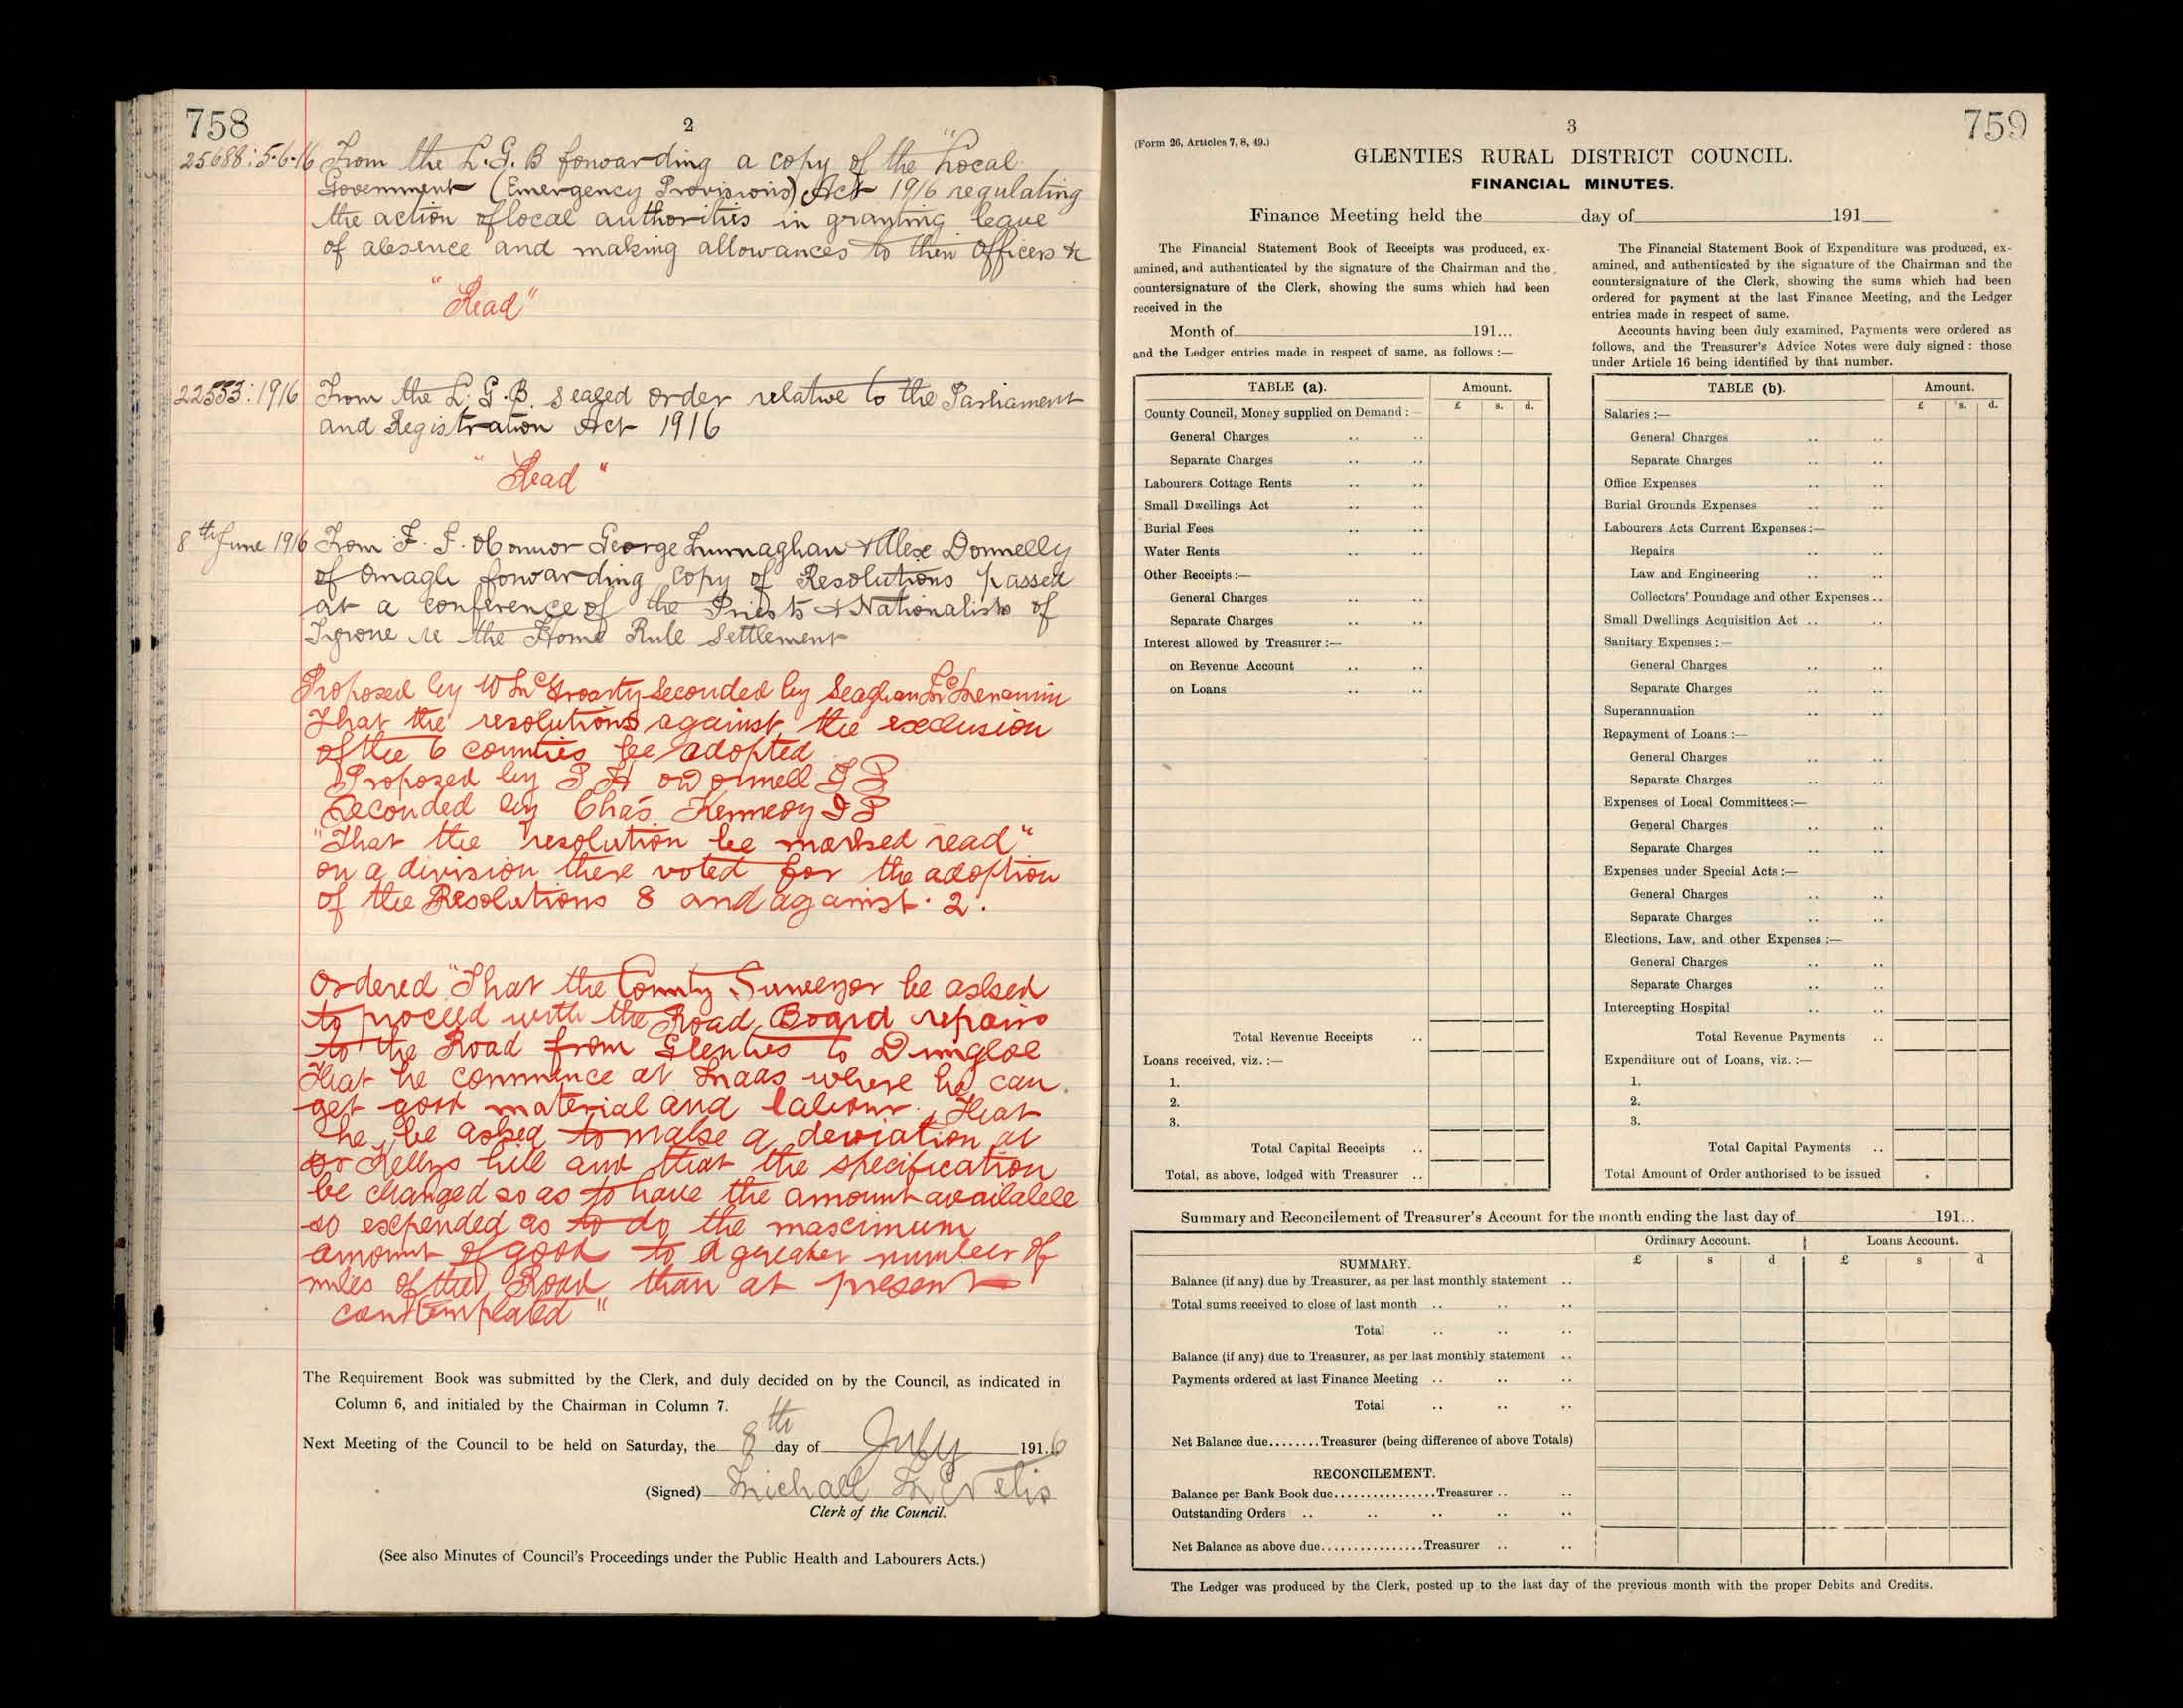 758
2
25688: 5-6-16 From the L.G.B forwarding a copy of the "Local
Government (Emergency Provisions) Act 1916 regulating
the action of local authorities in granting leave
of absence and making allowances to their officers &c
"Read"
22553: 1916 From the L.G.B. sealed order relative to the Parliament
and Registration Act 1916
"Read"
8th June 1916 From F. J. OConnor George Murnaghan & Alex Donnelly
of Omagh forwarding copy of Resolutions passed
at a conference of the Priests & Nationalists of
Tyrone re the Home Rule Settlement
Proposed by W McGroarty Seconded by Seaghan McMenamin
That the resolutions against the exclusion
of the 6 counties be adopted
Proposed by P H ODonnell JP
Seconded by Chas. Kennedy JP
"That the resolution be marked read"
on a division there voted for the adoption
of the Resolutions 8 and against 2.
Ordered "That the County Surveyor be asked
to proceed with the Road Board repairs
to the Road from Glenties to Dungloe
That he commence at Maas where he can
get good material and labour. That
he be asked to make a deviation at
Kellys hill and that the specification
be changed so as to have the amount available
so expended as to do the maximum
amount of good to a greater number of
miles of the Road than at present
contemplated"
The Requirement Book was submitted by the Clerk, and duly decided on by the Council, as indicated in
Column 6, and initialed by the Chairman in Column 7.
Next Meeting of the Council to be held on Saturday, the 8th day of July 1916
(Signed) Michael McNelis
Clerk of the Council.
(See also Minutes of Council's Proceedings under the Public Health and Labourers Acts.)
3
759
(Form 26, Articles 7, 8, 49.)
GLENTIES RURAL DISTRICT COUNCIL.
FINANCIAL MINUTES.
Finance Meeting held the day of 191
The Financial Statement Book of Receipts was produced, ex-
amined, and authenticated by the signature of the Chairman and the
countersignature of the Clerk, showing the sums which had been
received in the
Month of 191...
and the Ledger entries made in respect of same, as follows :—
TABLE (a). Amount.
£ s. d.
County Council, Money supplied on Demand :—
General Charges .. ..
Separate Charges .. ..
Labourers Cottage Rents .. ..
Small Dwellings Act .. ..
Burial Fees .. ..
Water Rents .. ..
Other Receipts :—
General Charges .. ..
Separate Charges .. ..
Interest allowed by Treasurer :—
on Revenue Account .. ..
on Loans .. ..
Total Revenue Receipts ..
Loans received, viz. :—
1.
2.
3.
Total Capital Receipts ..
Total, as above, lodged with Treasurer ..
The Financial Statement Book of Expenditure was produced, ex-
amined, and authenticated by the signature of the Chairman and the
countersignature of the Clerk, showing the sums which had been
ordered for payment at the last Finance Meeting, and the Ledger
entries made in respect of same.
Accounts having been duly examined, Payments were ordered as
follows, and the Treasurer's Advice Notes were duly signed : those
under Article 16 being identified by that number.
TABLE (b). Amount.
£ s. d.
Salaries :—
General Charges .. ..
Separate Charges .. ..
Office Expenses .. ..
Burial Grounds Expenses .. ..
Labourers Acts Current Expenses :—
Repairs .. ..
Law and Engineering .. ..
Collectors' Poundage and other Expenses ..
Small Dwellings Acquisition Act .. ..
Sanitary Expenses :—
General Charges .. ..
Separate Charges .. ..
Superannuation .. ..
Repayment of Loans :—
General Charges .. ..
Separate Charges .. ..
Expenses of Local Committees :—
General Charges .. ..
Separate Charges .. ..
Expenses under Special Acts :—
General Charges .. ..
Separate Charges .. ..
Elections, Law, and other Expenses :—
General Charges .. ..
Separate Charges .. ..
Intercepting Hospital .. ..
Total Revenue Payments ..
Expenditure out of Loans, viz. :—
1.
2.
3.
Total Capital Payments ..
Total Amount of Order authorised to be issued
Summary and Reconcilement of Treasurer's Account for the month ending the last day of 191...
Ordinary Account. Loans Account.
£ s d £ s d
SUMMARY.
Balance (if any) due by Treasurer, as per last monthly statement ..
Total sums received to close of last month .. .. ..
Total .. .. ..
Balance (if any) due to Treasurer, as per last monthly statement ..
Payments ordered at last Finance Meeting .. .. ..
Total .. .. ..
Net Balance due........Treasurer (being difference of above Totals)
RECONCILEMENT.
Balance per Bank Book due................Treasurer .. ..
Outstanding Orders .. .. .. .. ..
Net Balance as above due................Treasurer .. ..
The Ledger was produced by the Clerk, posted up to the last day of the previous month with the proper Debits and Credits.